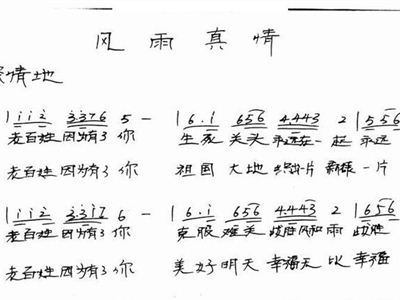 风雨真情
情地
| i i 2 3.376 5 — | 6.i 656 4.443 2 | 556
老百姓 因为有了 你 生死 关头 永远在一 起 永远
老百姓 因为有了 你 祖国 大地 一片 一片
| i i 2 3.3i7 6 — | 6.i 656 4.443 2 | 656
老百姓 因为有了 你 克服 难关 战胜风和 雨 战胜
老百姓 因为有了 你 美好 明天 幸福无 比 幸福